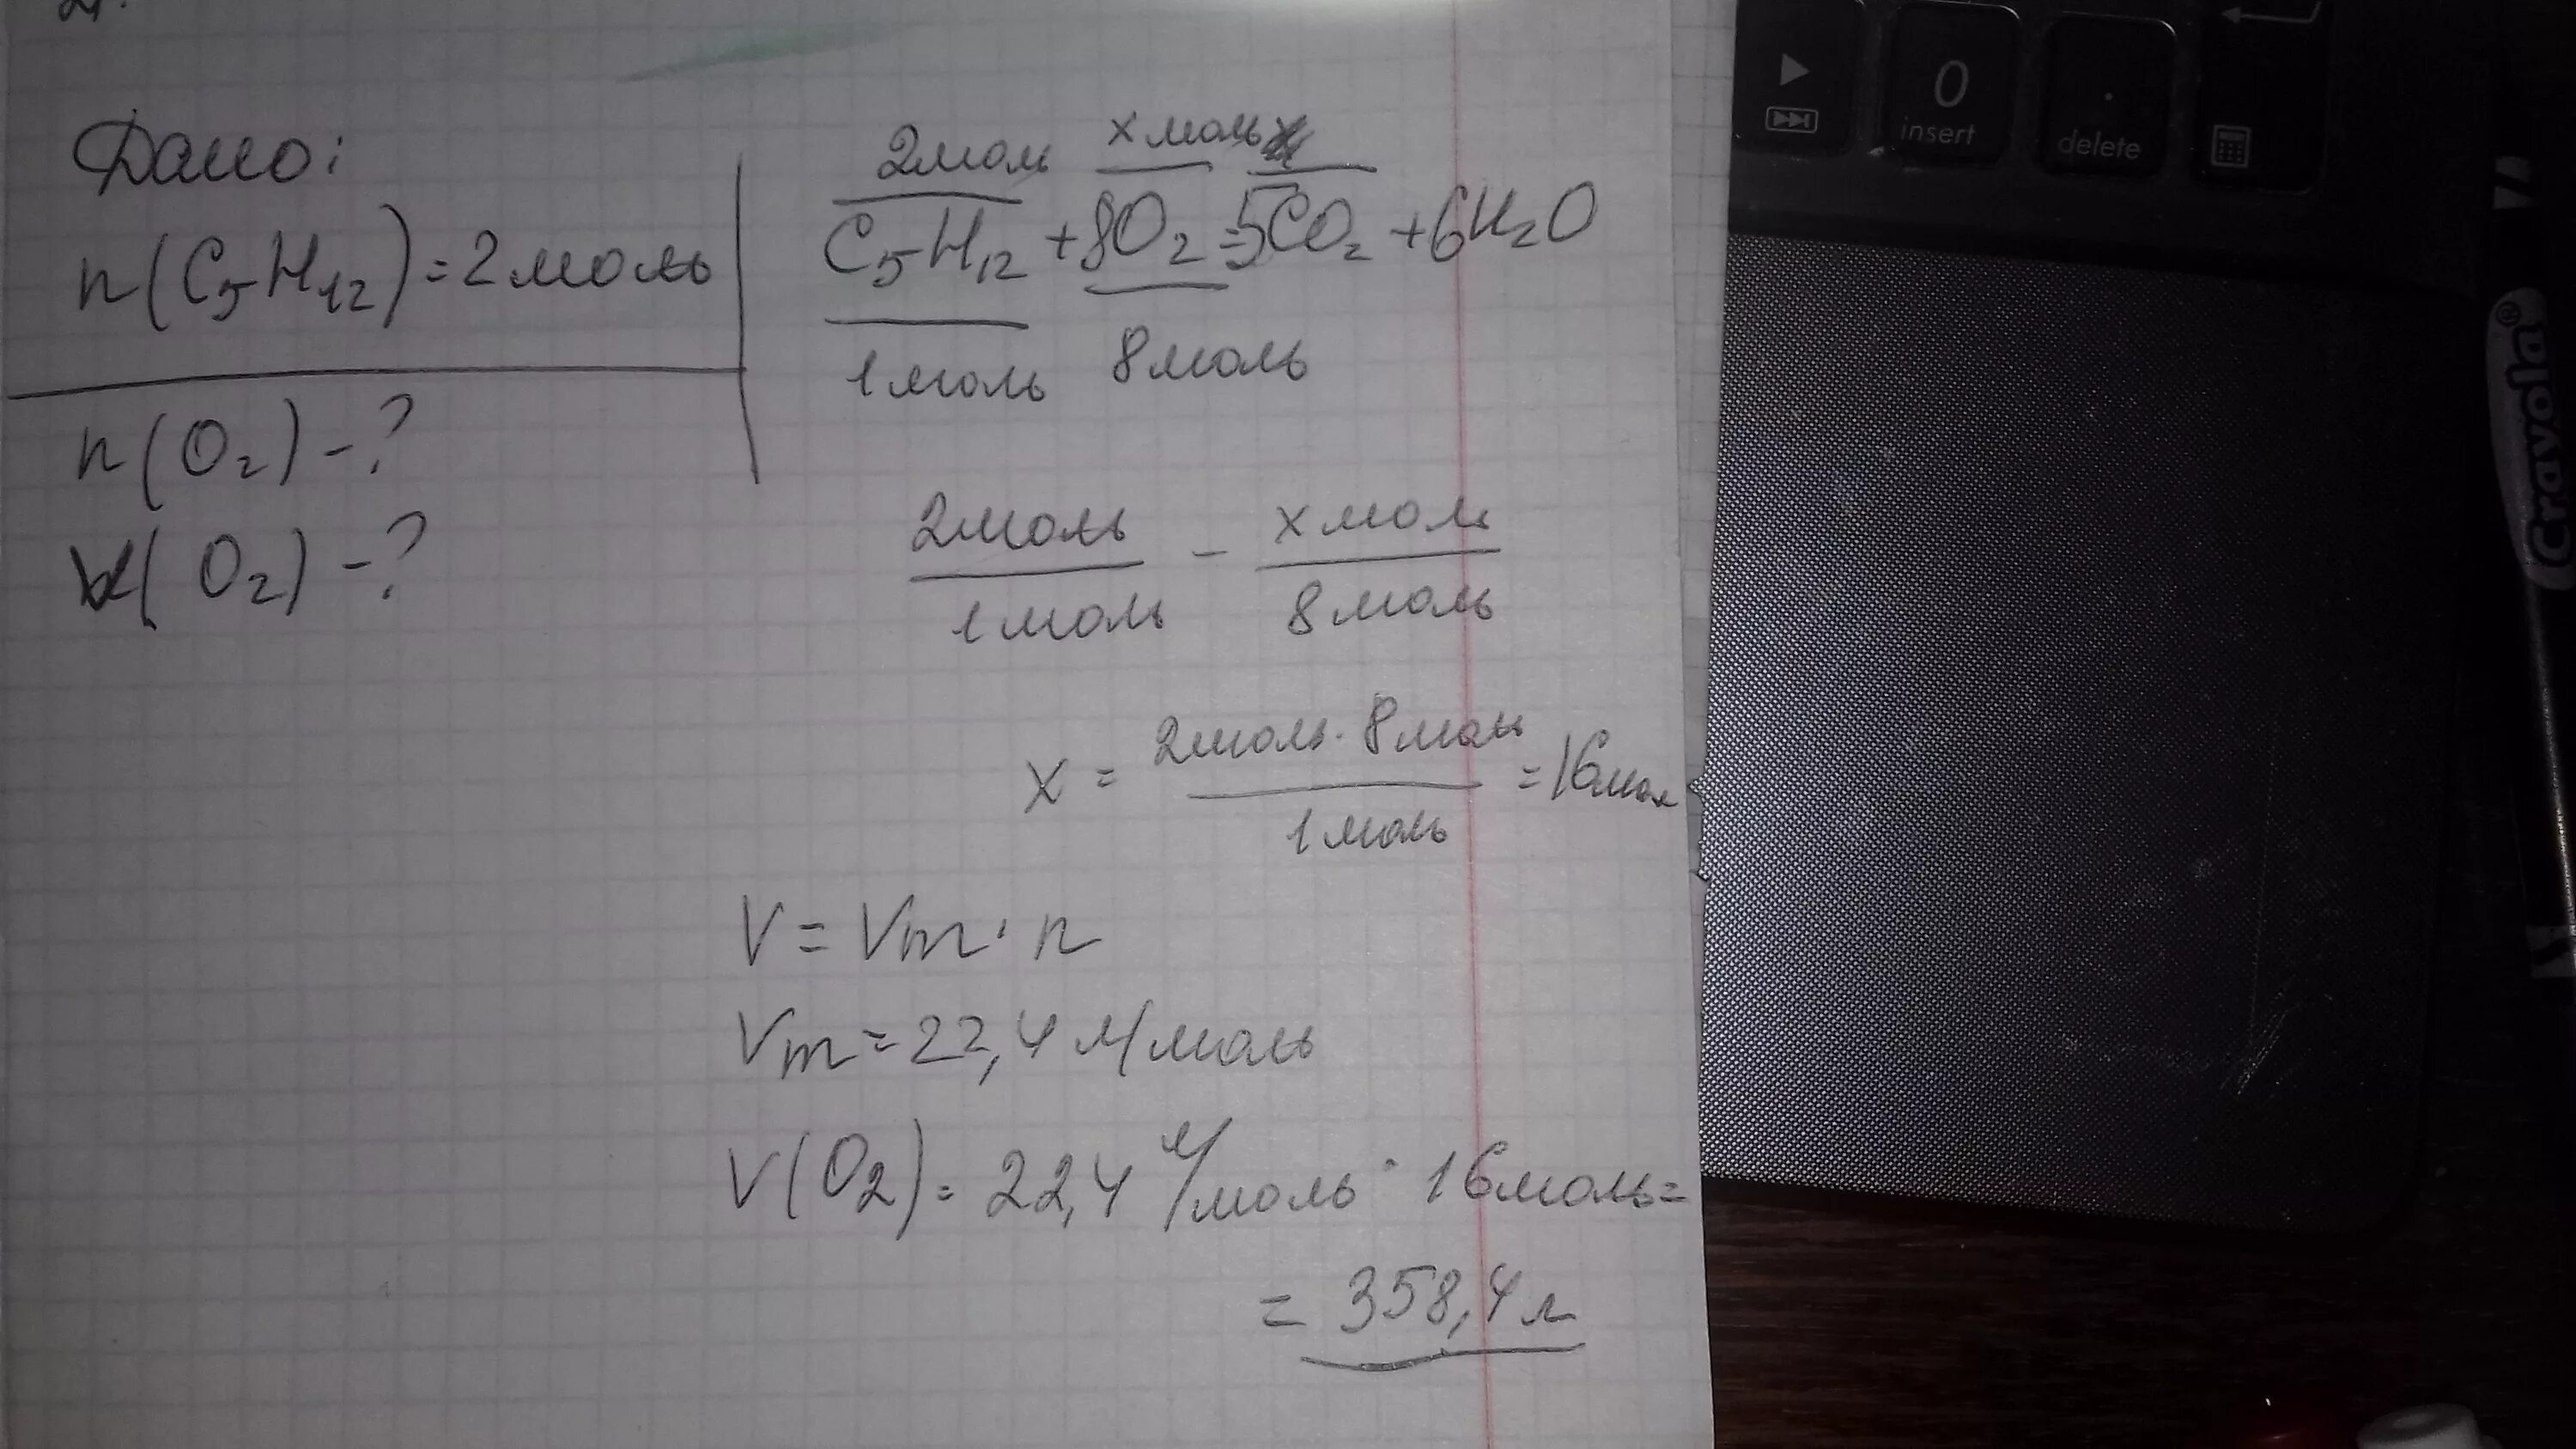 Дано:
n(C₅H₁₂)=2моль
n(O₂)-?
V(O₂)-?
2моль x моль
C₅H₁₂+8O₂=5CO₂+6H₂O
1моль 8моль
2моль - x моль
1моль 8моль
x = 2моль·8моль =16мол
1моль
V=Vm·n
Vm=22,4 л/моль
V(O₂)=22,4 л/моль·16моль=
=358,4 л
0
insert
.
delete
Crayola®